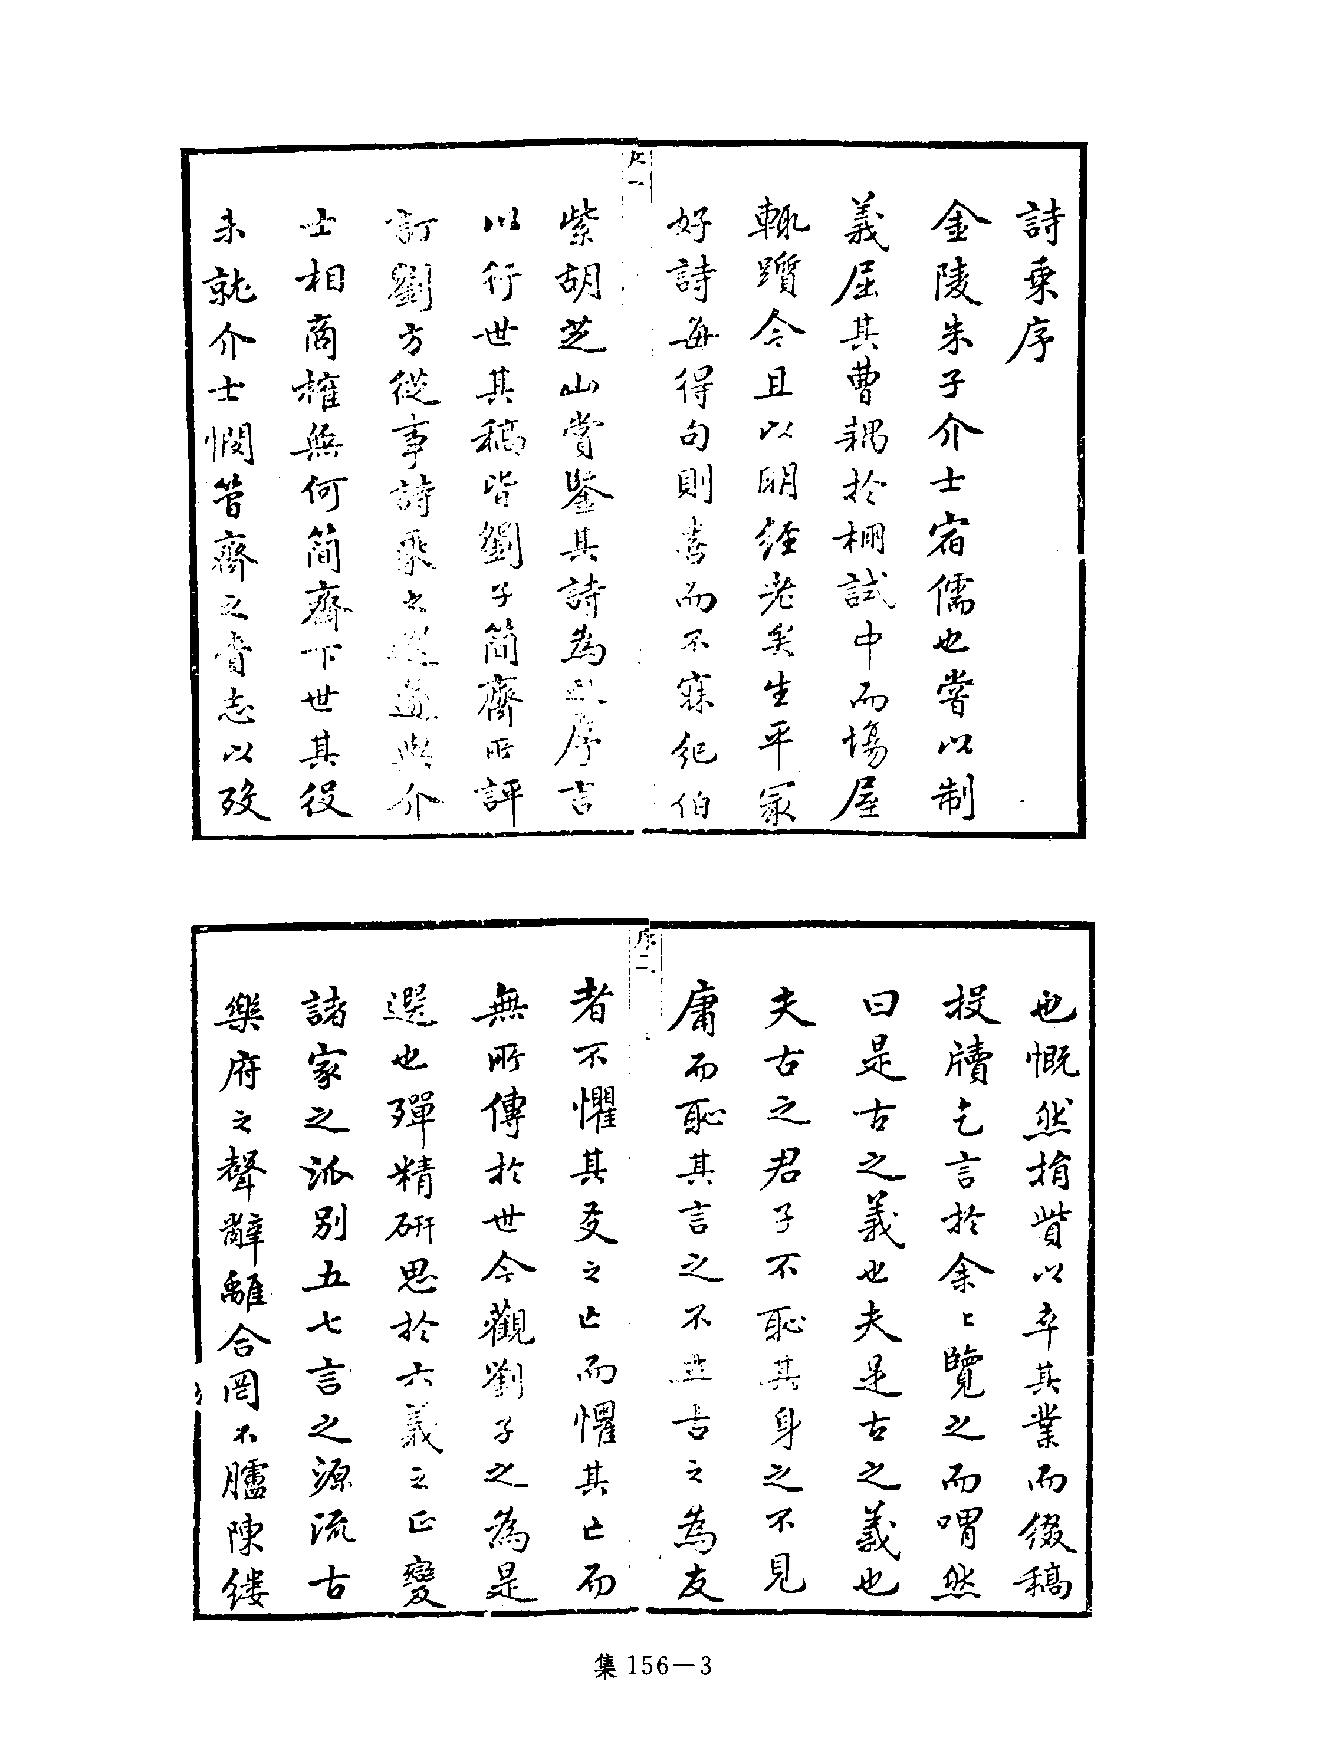 詩乗序
金陵朱子介士宿儒也嘗以制
義屈其曹耦於棚試中而場屋
輒躓今且以明經老矣生平冣
好詩每得句則喜而不寐紀伯
序一
紫胡芝山賞鑒其詩為之序言
以行世其稿皆劉子簡齋所評
訂劉方從事詩乗之選適與介
士相商榷無何簡齋下世其役
未就介士憫簡齋之齎志以歿
也慨然捐貲以卒其業而綴稿
投牘乞言於余〻覽之而喟然
曰是古之義也夫是古之義也
夫古之君子不恥其身之不見
庸而恥其言之不立古之為友
序二
者不懼其友之亡而懼其亡而
無所傳於世今觀劉子之為是
選也殫精研思於六義之正變
諸家之派別五七言之源流古
樂府之聲辭離合罔不臚陳縷
集 156—3